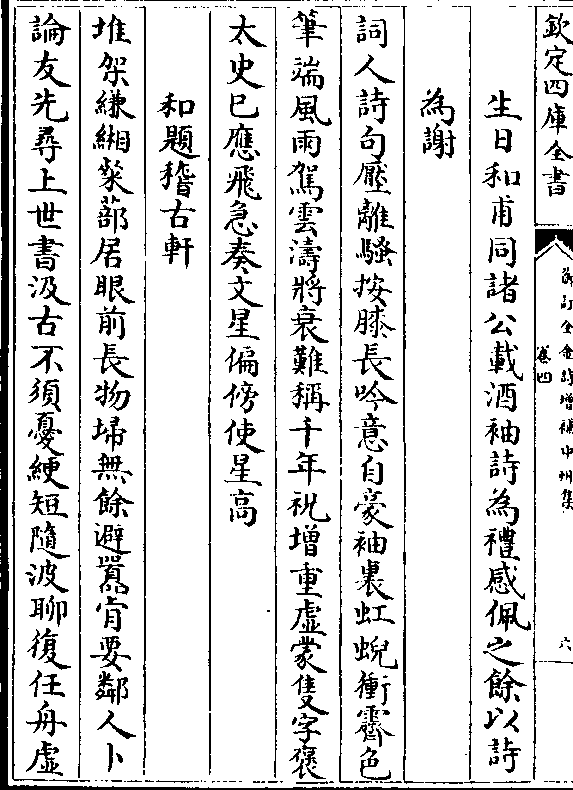 欽定四庫全書
御訂全金詩增補中州集
卷四
六
生日和甫同諸公載酒袖詩為禮感佩之餘以詩
為謝
詞人詩句壓離騷按膝長吟意自豪袖裏虹蜺衝霽色
筆端風雨駕雲濤將衰難稱千年祝增重虛蒙隻字褒
太史已應飛急奏文星偏傍使星高
和題稽古軒
堆架縑緗粲蔀居眼前長物埽無餘避囂肯要鄰人卜
論友先尋上世書汲古不須憂綆短隨波聊復任舟虛